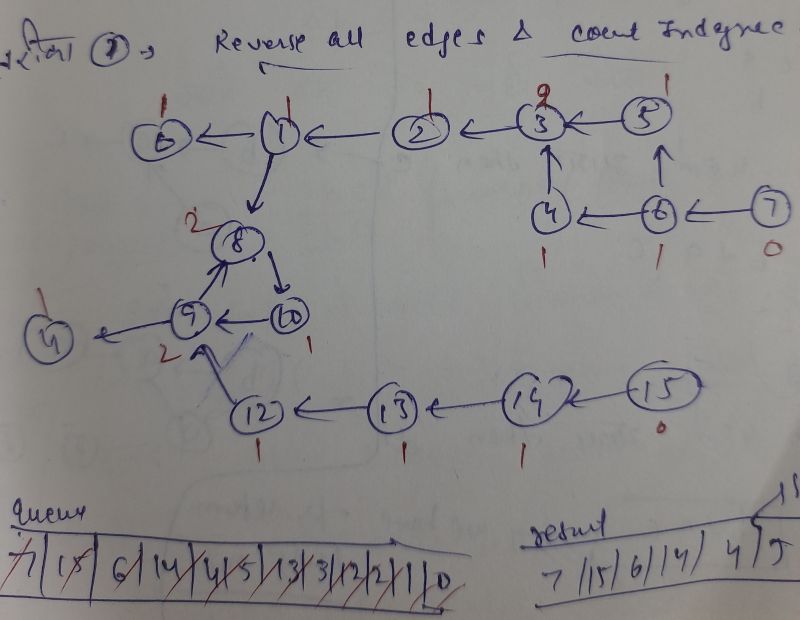 ① → Reverse all edges & count Indegree
1 1 1 2 1
0 1 2 3 5
4 6 7
2 8 1 1 0
1
11 9 10
2 1
12 13 14 15
1 1 1 0
queue
7 | 15 | 6 | 14 | 4 | 5 | 13 | 3 | 12 | 2 | 1 | 0
result
7 | 15 | 6 | 14 | 4 | 5